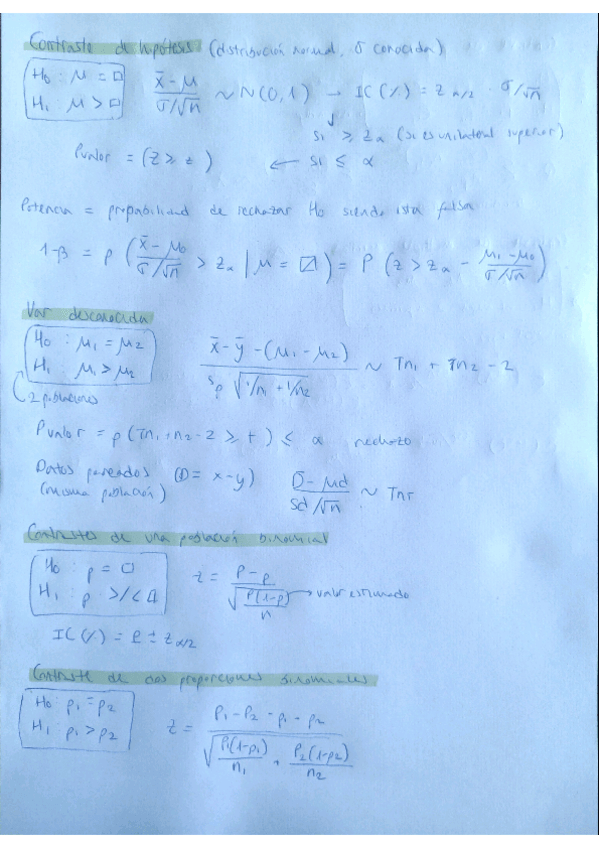 Contraste de hipótesis (distribución normal, σ conocida)
H0 : μ = □
H1 : μ > □
x̄ - μ / σ/√n ~ N(0,1) → IC(%) = z α/2 · σ/√n
↓
si ≥ zα (si es unilateral superior)
Pvalor = (Z ≥ z) ← si ≤ α
Potencia = probabilidad de rechazar H0 siendo ista falsa
1-β = P ( x̄ - μ0 / σ/√n > zα | μ = □ ) = P ( z > zα - μ1 - μ0 / σ/√n )
Var desconocida
H0 : μ1 = μ2
H1 : μ1 > μ2
2 poblaciones
x̄ - ȳ - (μ1 - μ2) / sp √1/n1 + 1/n2 ~ Tn1 + Tn2 - 2
Pvalor = p (Tn1+n2-2 ≥ t) ≤ α rechazo
Datos pareados (D = x-y)
(misma población)
D̄ - μd / Sd/√n ~ Tn
Contrastes de una población binomial
H0 : p = □
H1 : p >/< □
z = P - p / √P(1-p)/n → valor estimado
IC(%) = P ± z α/2
Contraste de dos proporciones binomiales
H0 : p1 = p2
H1 : p1 > p2
z = P1 - P2 - p1 - p2 / √P1(1-p1)/n1 + P2(1-p2)/n2